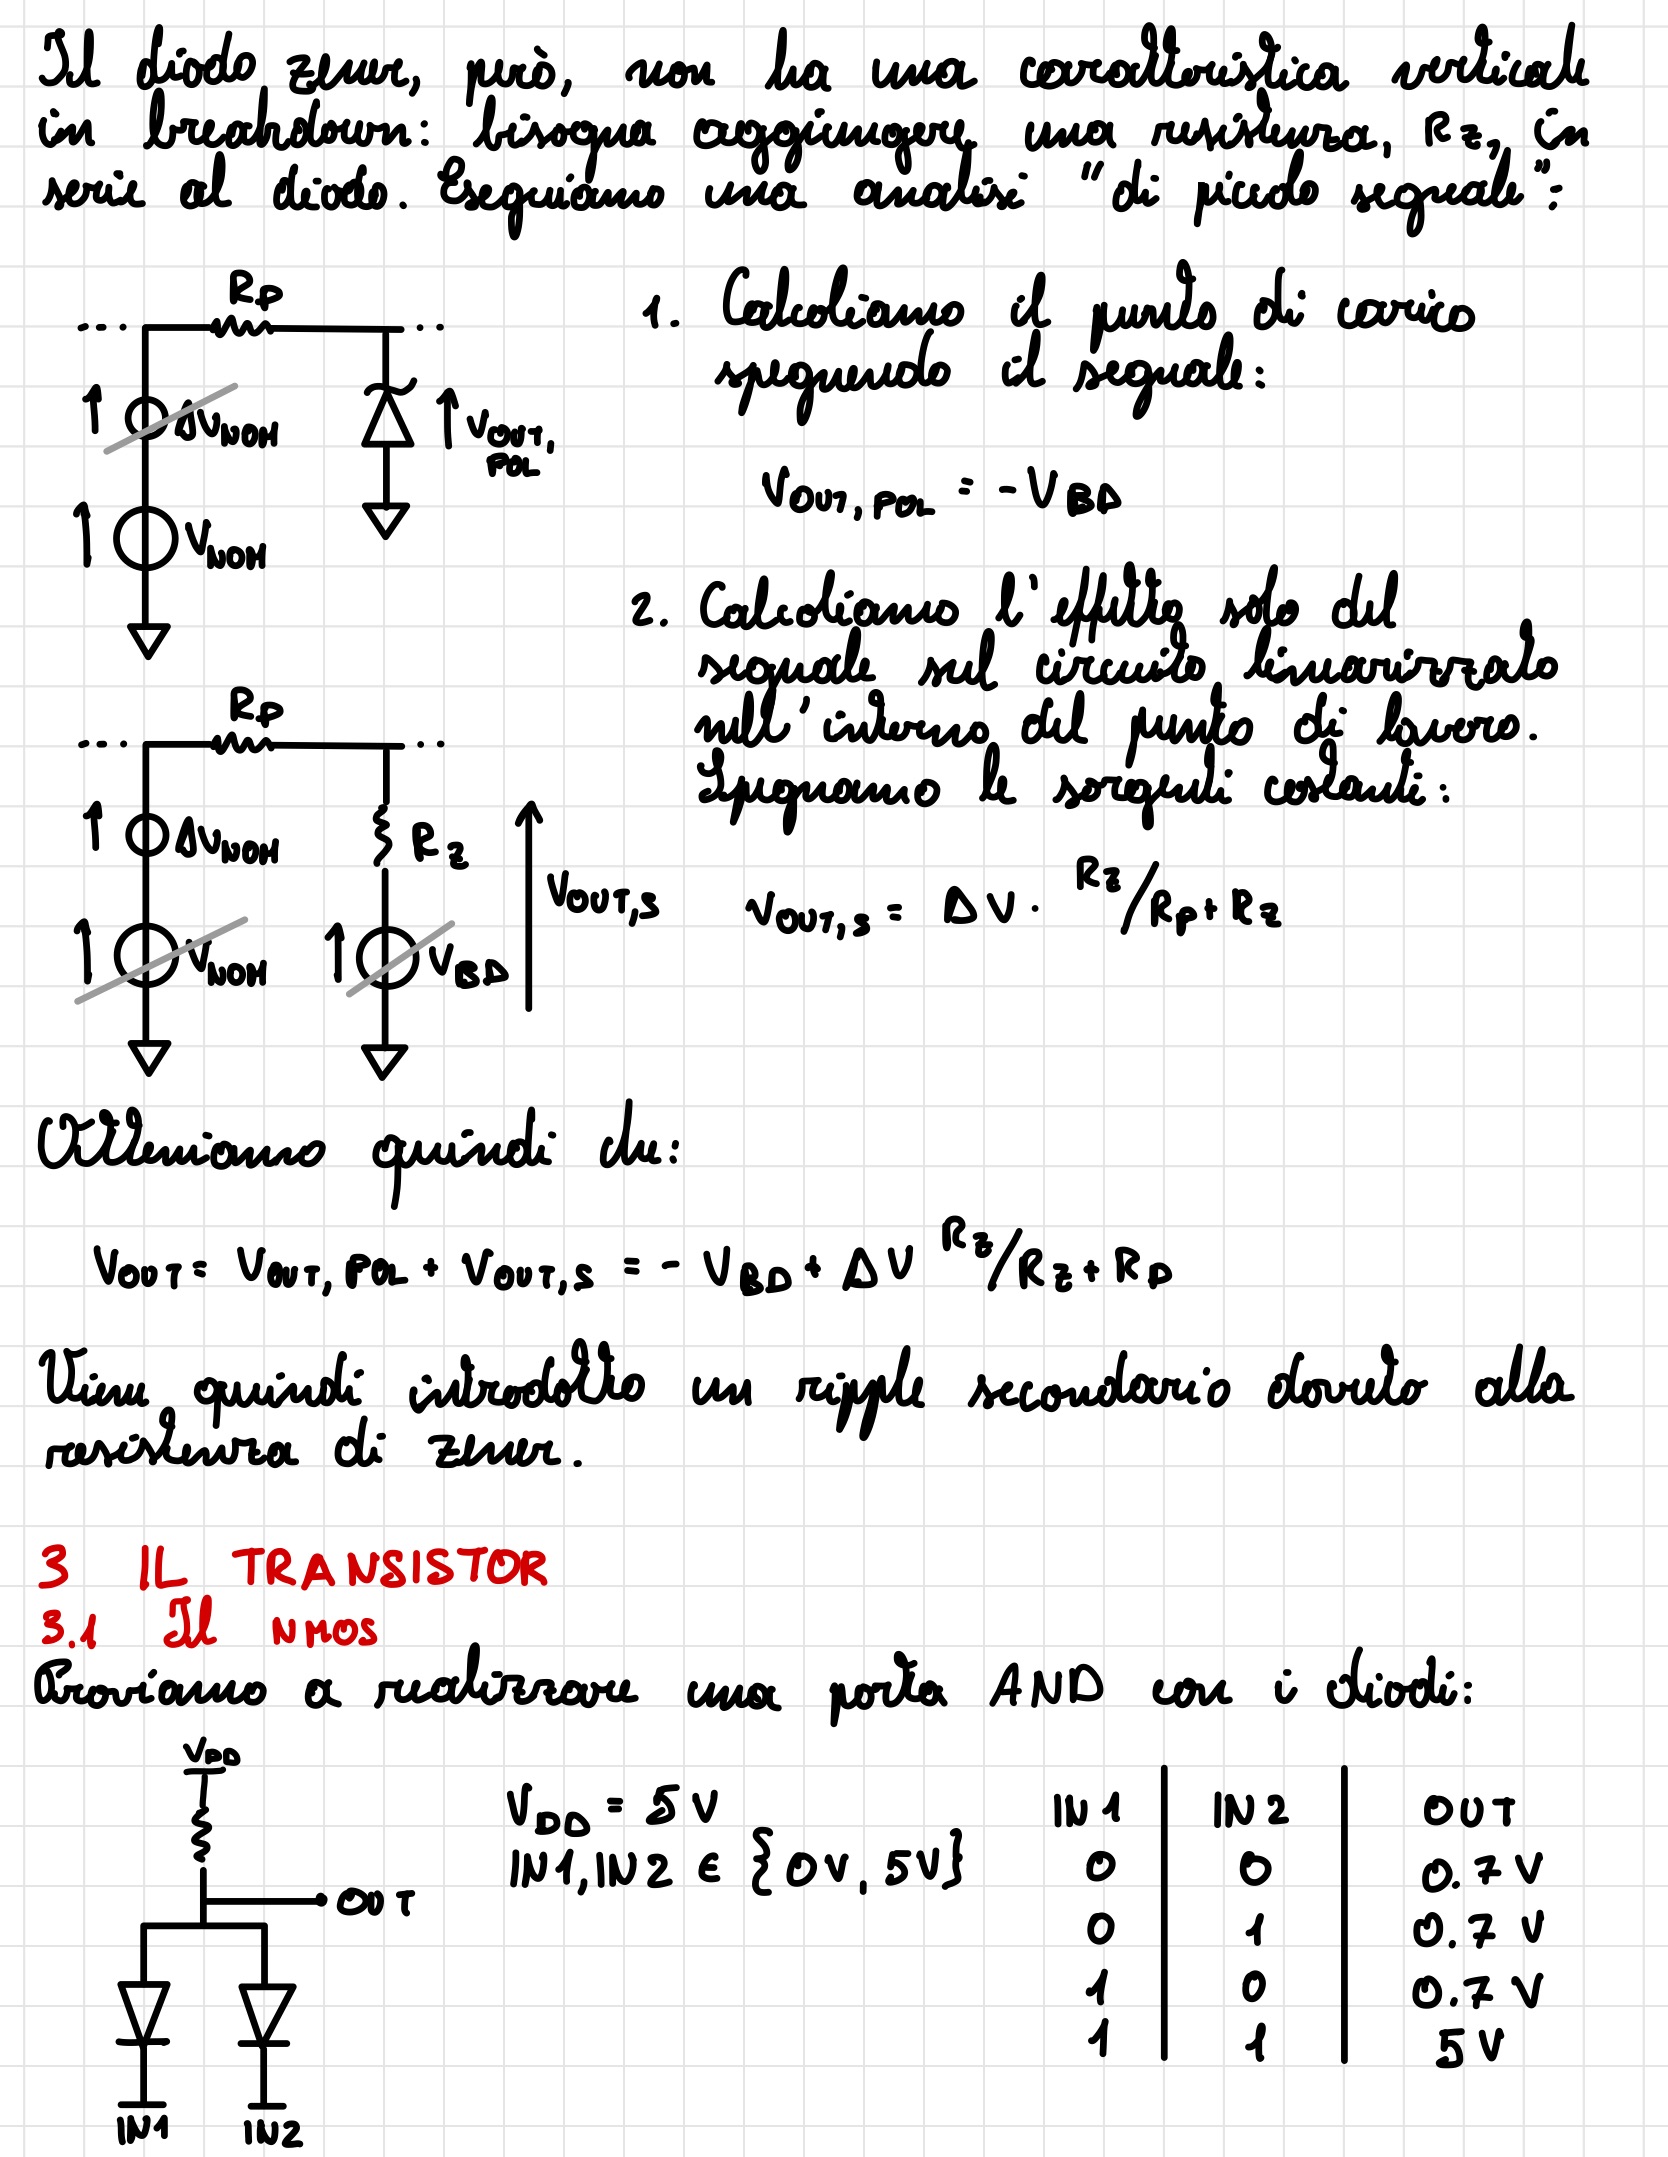 Il diodo zener, però, non ha una caratteristica verticale
in breakdown: bisogna aggiungere una resistenza, Rz, in
serie al diodo. Eseguiamo una analisi "di piccolo segnale":
RP
1. Calcoliamo il punto di carico
spegnendo il segnale:
ΔVNOM
VOUT,
POL
VOUT, POL = -VBD
VNOM
2. Calcoliamo l'effetto solo del
segnale sul circuito linearizzato
nell'interno del punto di lavoro.
Spegnamo le sorgenti costanti:
RP
ΔVNOM
RZ
VOUT,S
VOUT,S = ΔV · RZ/RP+RZ
VNOM
VBD
Otteniamo quindi che:
VOUT = VOUT, POL + VOUT,S = - VBD + ΔV RZ/RZ+RP
Viene quindi introdotto un ripple secondario dovuto alla
resistenza di zener.
3 IL TRANSISTOR
3.1 Il NMOS
Proviamo a realizzare una porta AND con i diodi:
VDD
VDD = 5V
IN1, IN2 ∈ {0V, 5V}
OUT
IN1
IN2
IN1 IN2 OUT
0 0 0.7 V
0 1 0.7 V
1 0 0.7 V
1 1 5V